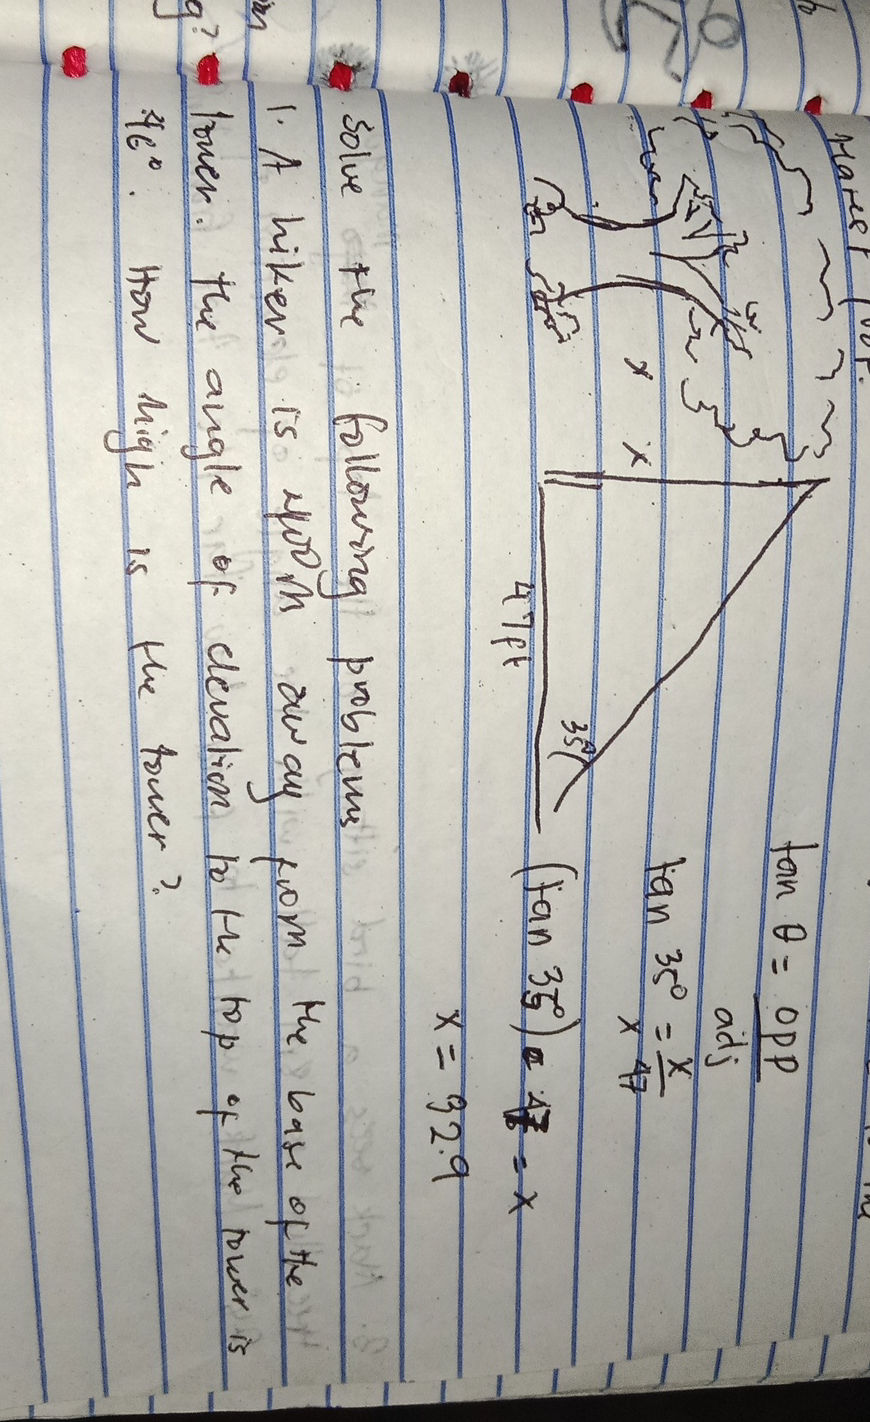 tan θ = opp
adj
tan 35° = x
47
x
x
x
35°
47ft
(tan 35°) 47 = x
x = 32.9
Solve the following problems
1. A hiker is 400m away from the base of the
tower. the angle of elevation to the top of the tower is
46°. How high is the tower?
g?